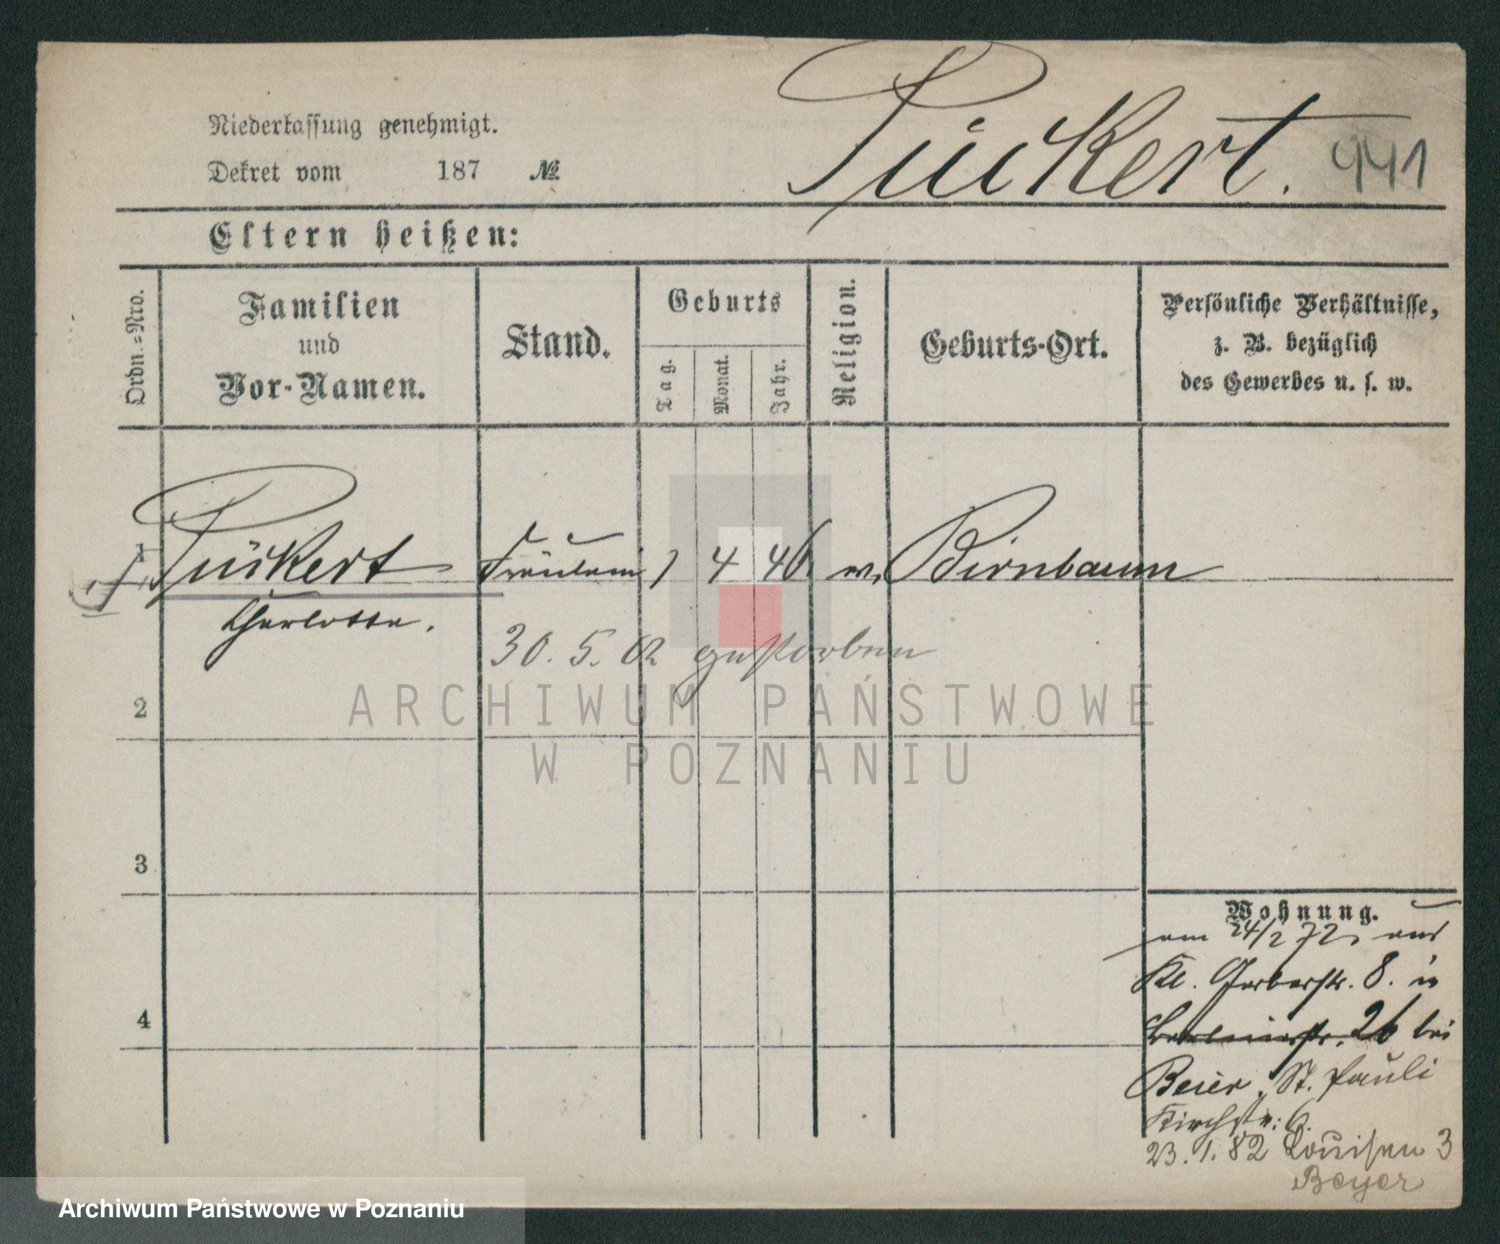 Pückert. 441
Niederlassung genehmigt.
Dekret vom 187 №
Eltern heißen:
Ordn.=Nro.
Familien
und
Vor-Namen.
Stand.
Geburts
Tag.
Monat.
Jahr.
Religion.
Geburts-Ort.
Persönliche Verhältnisse,
z. B. bezüglich
des Gewerbes u. s. w.
1 Pückert Fräulein 1 4 46 ev. Birnbaum
Charlotte.
30. 5. 02 gestorben
2
3
4
Wohnung.
am 24/2 72, aus
Kl. Gerberstr. 8. in
Berlinerstr. 26 bei
Beier. St. Pauli
Kirchstr: 6.
23. 1. 82 Louisen 3
Beyer
ARCHIWUM PAŃSTWOWE
W POZNANIU
Archiwum Państwowe w Poznaniu